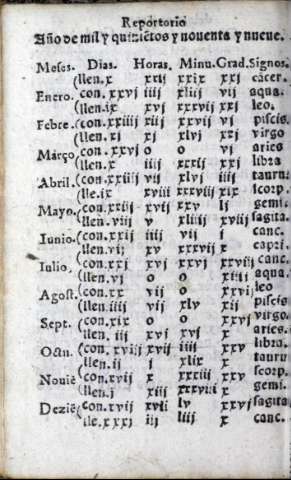 Reportorio
Año de mil y quiniẽtos y nouenta y nueue.
Meses. Dias. Horas. Minu. Grad. Signos.
(llen. x xxij xxix xxj cãcer.
Enero. (con. xxvj iiij xliij vij aqua.
(llen. ix xvj xxxvij xxj leo.
Febre. (con. xxiiij xiij xxvij vj piscis.
(llen. xj xj xlvj xxj virgo
Março (con. xxvj o o vj aries
(llen. ix iiij xxxij xxj libra
Abril. (con. xxiiij vij xlvj iiij tauru
(lle. ix xviij xxxvij xix scorp.
Mayo. (con. xxiij xvj xxv lj gemi.
(llen. viij v xliiij xviij sagita.
Junio. (con. xxij iiij vij j canc.
(llen. vij xv xxxvij x capri.
Julio. (con. xxj xvj xxvj canc.
(llen. vj o o aqua.
Agost. (con. xx vij o leo
(llen. iiij vij xlv xij piscis
Sept. (con. xix o o virgo.
(llen. iij xvj xvj x aries.
Octu. (con. xviij xvij iiij libra.
(llen. ij j xlix x tauru
Nouiẽ (con. xvij x xxiij scorp.
(llen. j xiij x gemi.
Deziẽ (con. xvij xvij lv xxv sagita
(lle. xxxj iij liij x canc.